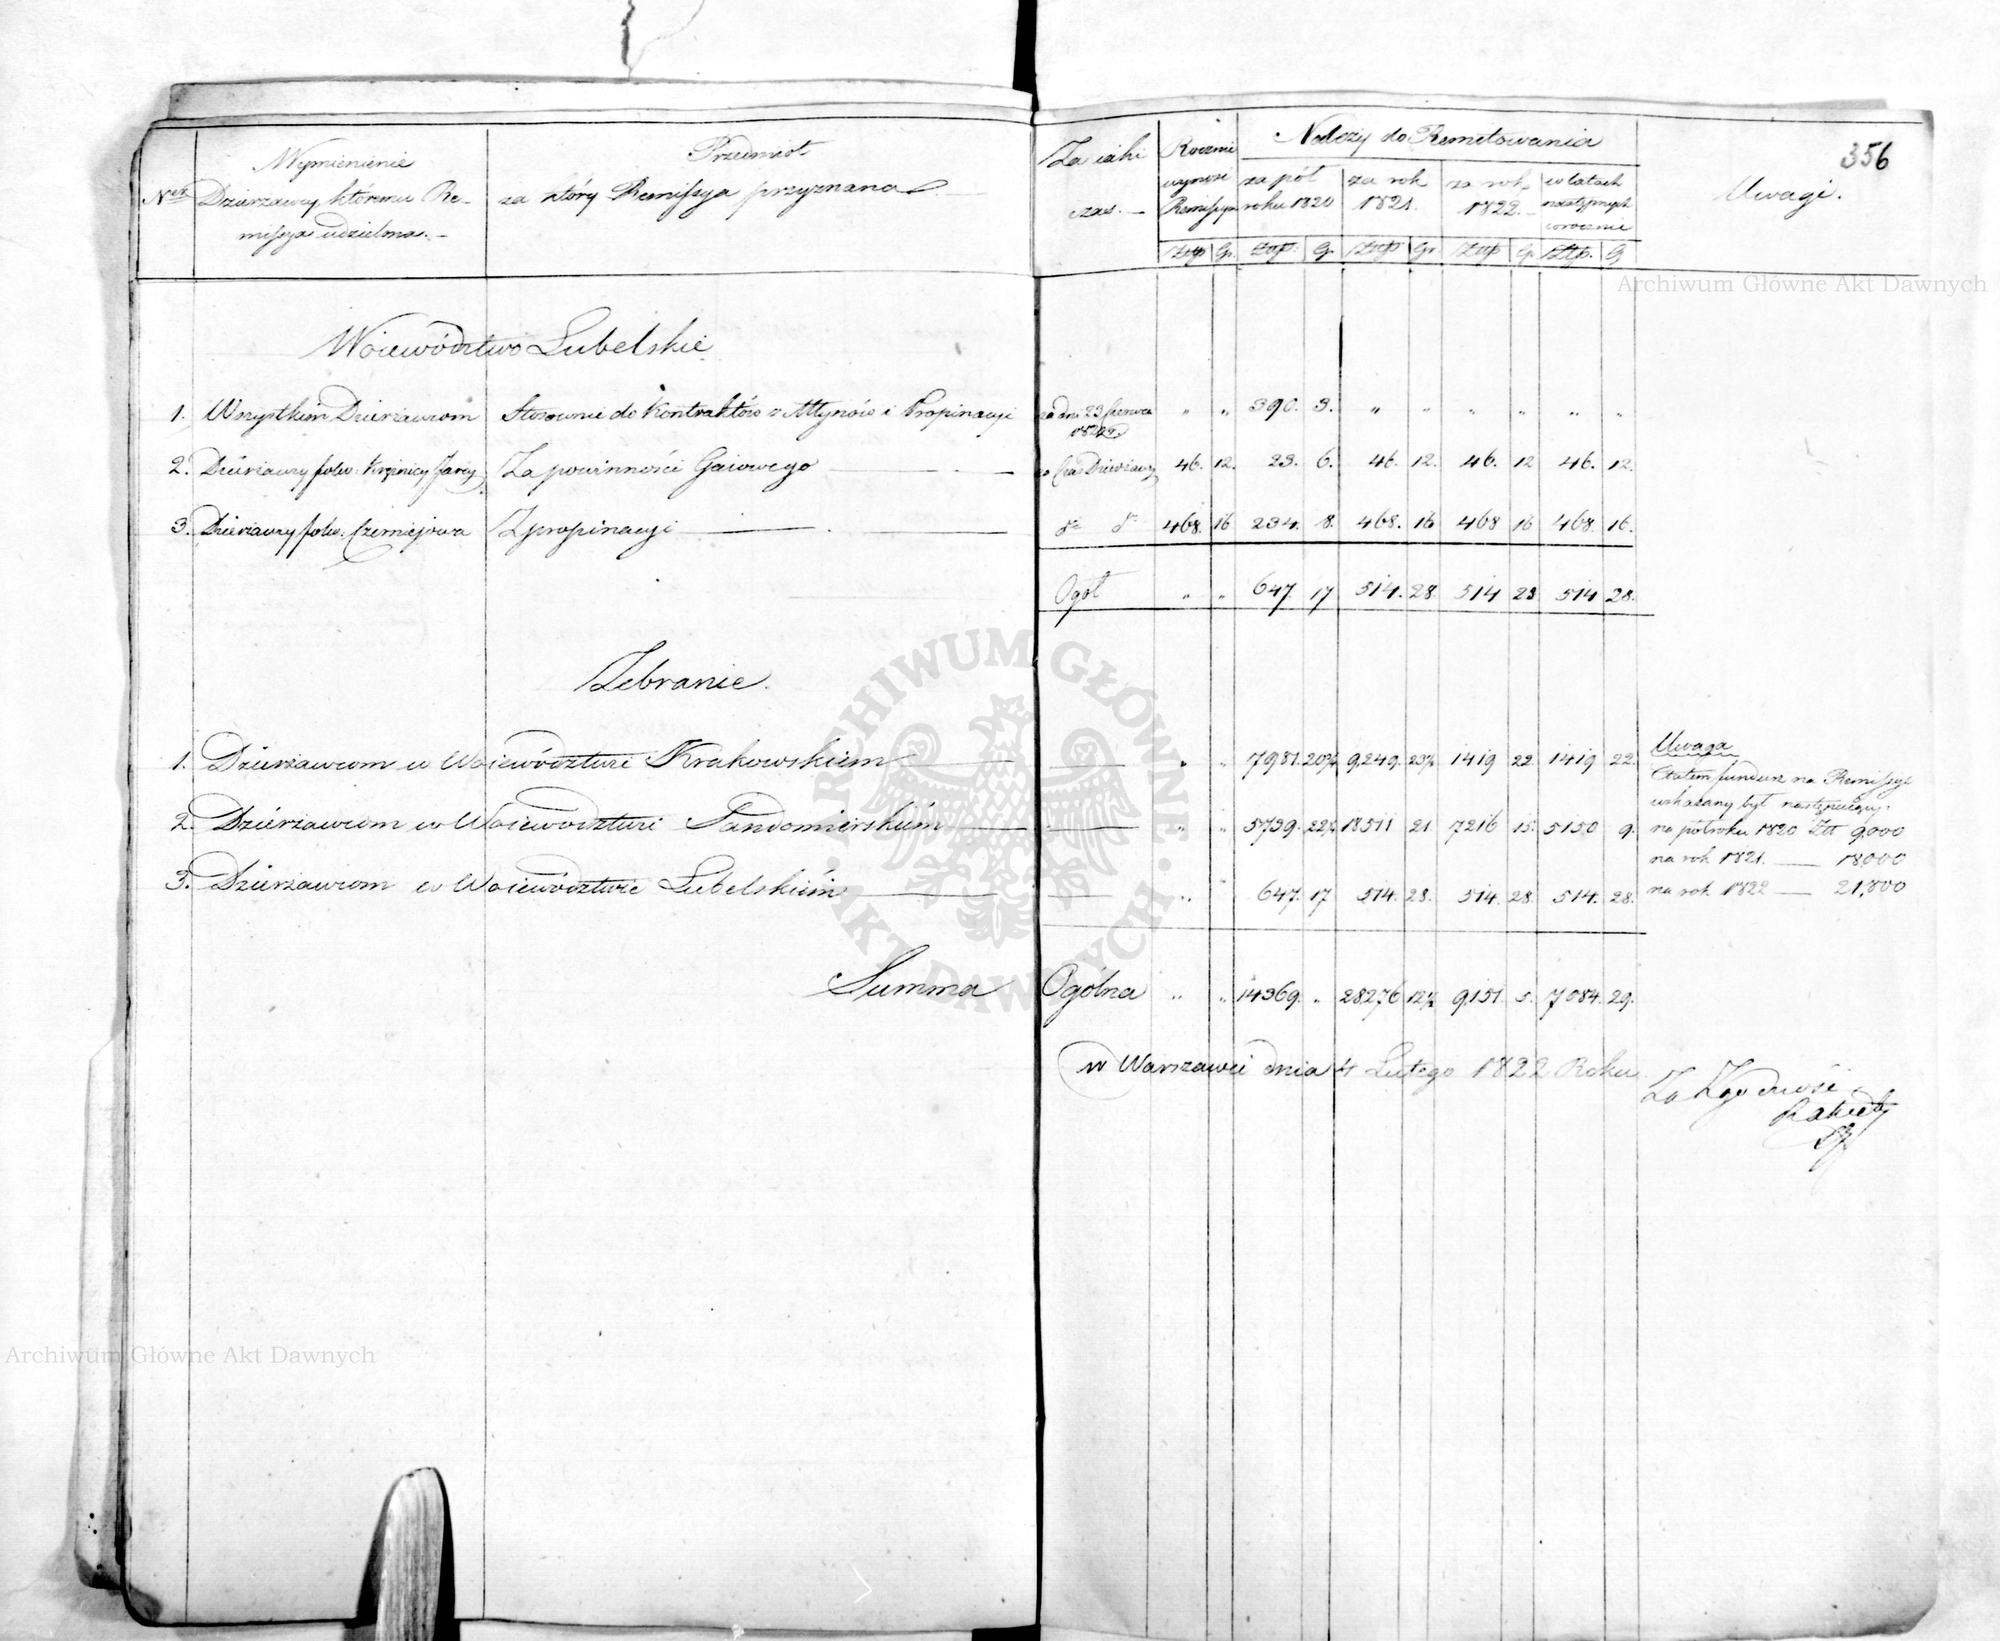 356
Ner
Wymienienie
Dzierzawcy któremu Re-
missya udzielona. -
Przedmiot
za który Remissya przyznana. -
Za iaki
czas. -
Rocznie
wynosi
Remissya
Należy do Remitowania
za pół
roku 1820
za rok
1821.
za rok
1822. -
w latach
następnych
corocznie
Uwagi.
Złtp Gr. Złtp. G. Złtp Gr. Złtp G. Złtp. G
Woiewództwo Lubelskie
1. Wszystkim Dzierżawcom Stosownie do Kontraktów z Młynów i Propinacyi za dni 23 Czerwca " " 390. 3. " " " " " "
2. Dzierżawcy folw: Krężnicy Jarey Za powinności Gaiowego za Czas Dzierżawy 46. 12. 23. 6. 46. 12. 46. 12 46. 12.
3. Dzierżawcy folw. Czerniejowa Z propinacyi do do 468. 16 234. 8. 468. 16 468 16 468. 16.
Ogół " " 647. 17 514. 28. 514 28 514 28.
Zebranie.
1. Dzierżawcom w Woiewództwie Krakowskiem " " 7981. 20½ 9,249. 23½ 1419 22 1419 22.
2. Dzierżawcom w Woiewództwie Sandomierskiém " " 5739. 22½ 18511 21. 7216 15. 5150 9.
3. Dzierżawcom w Woiewództwie Lubelskiém " " 647. 17 514. 28. 514. 28. 514. 28.
Uwaga
Etatem fundusz na Remissye
wskazany był następuiący:
na pół roku 1820 Złt 9,000
na rok 1821. — 18000
na rok 1822 — 21,800
Summa Ogólna " " 14369. " 28276 12½ 9,151. 5. 7084. 29.
w Warszawie dnia 4 Lutego 1822 Roku
Za Zgodność
Archiwum Główne Akt Dawnych
Archiwum Główne Akt Dawnych
ARCHIWUM GŁÓWNE AKT DAWNYCH